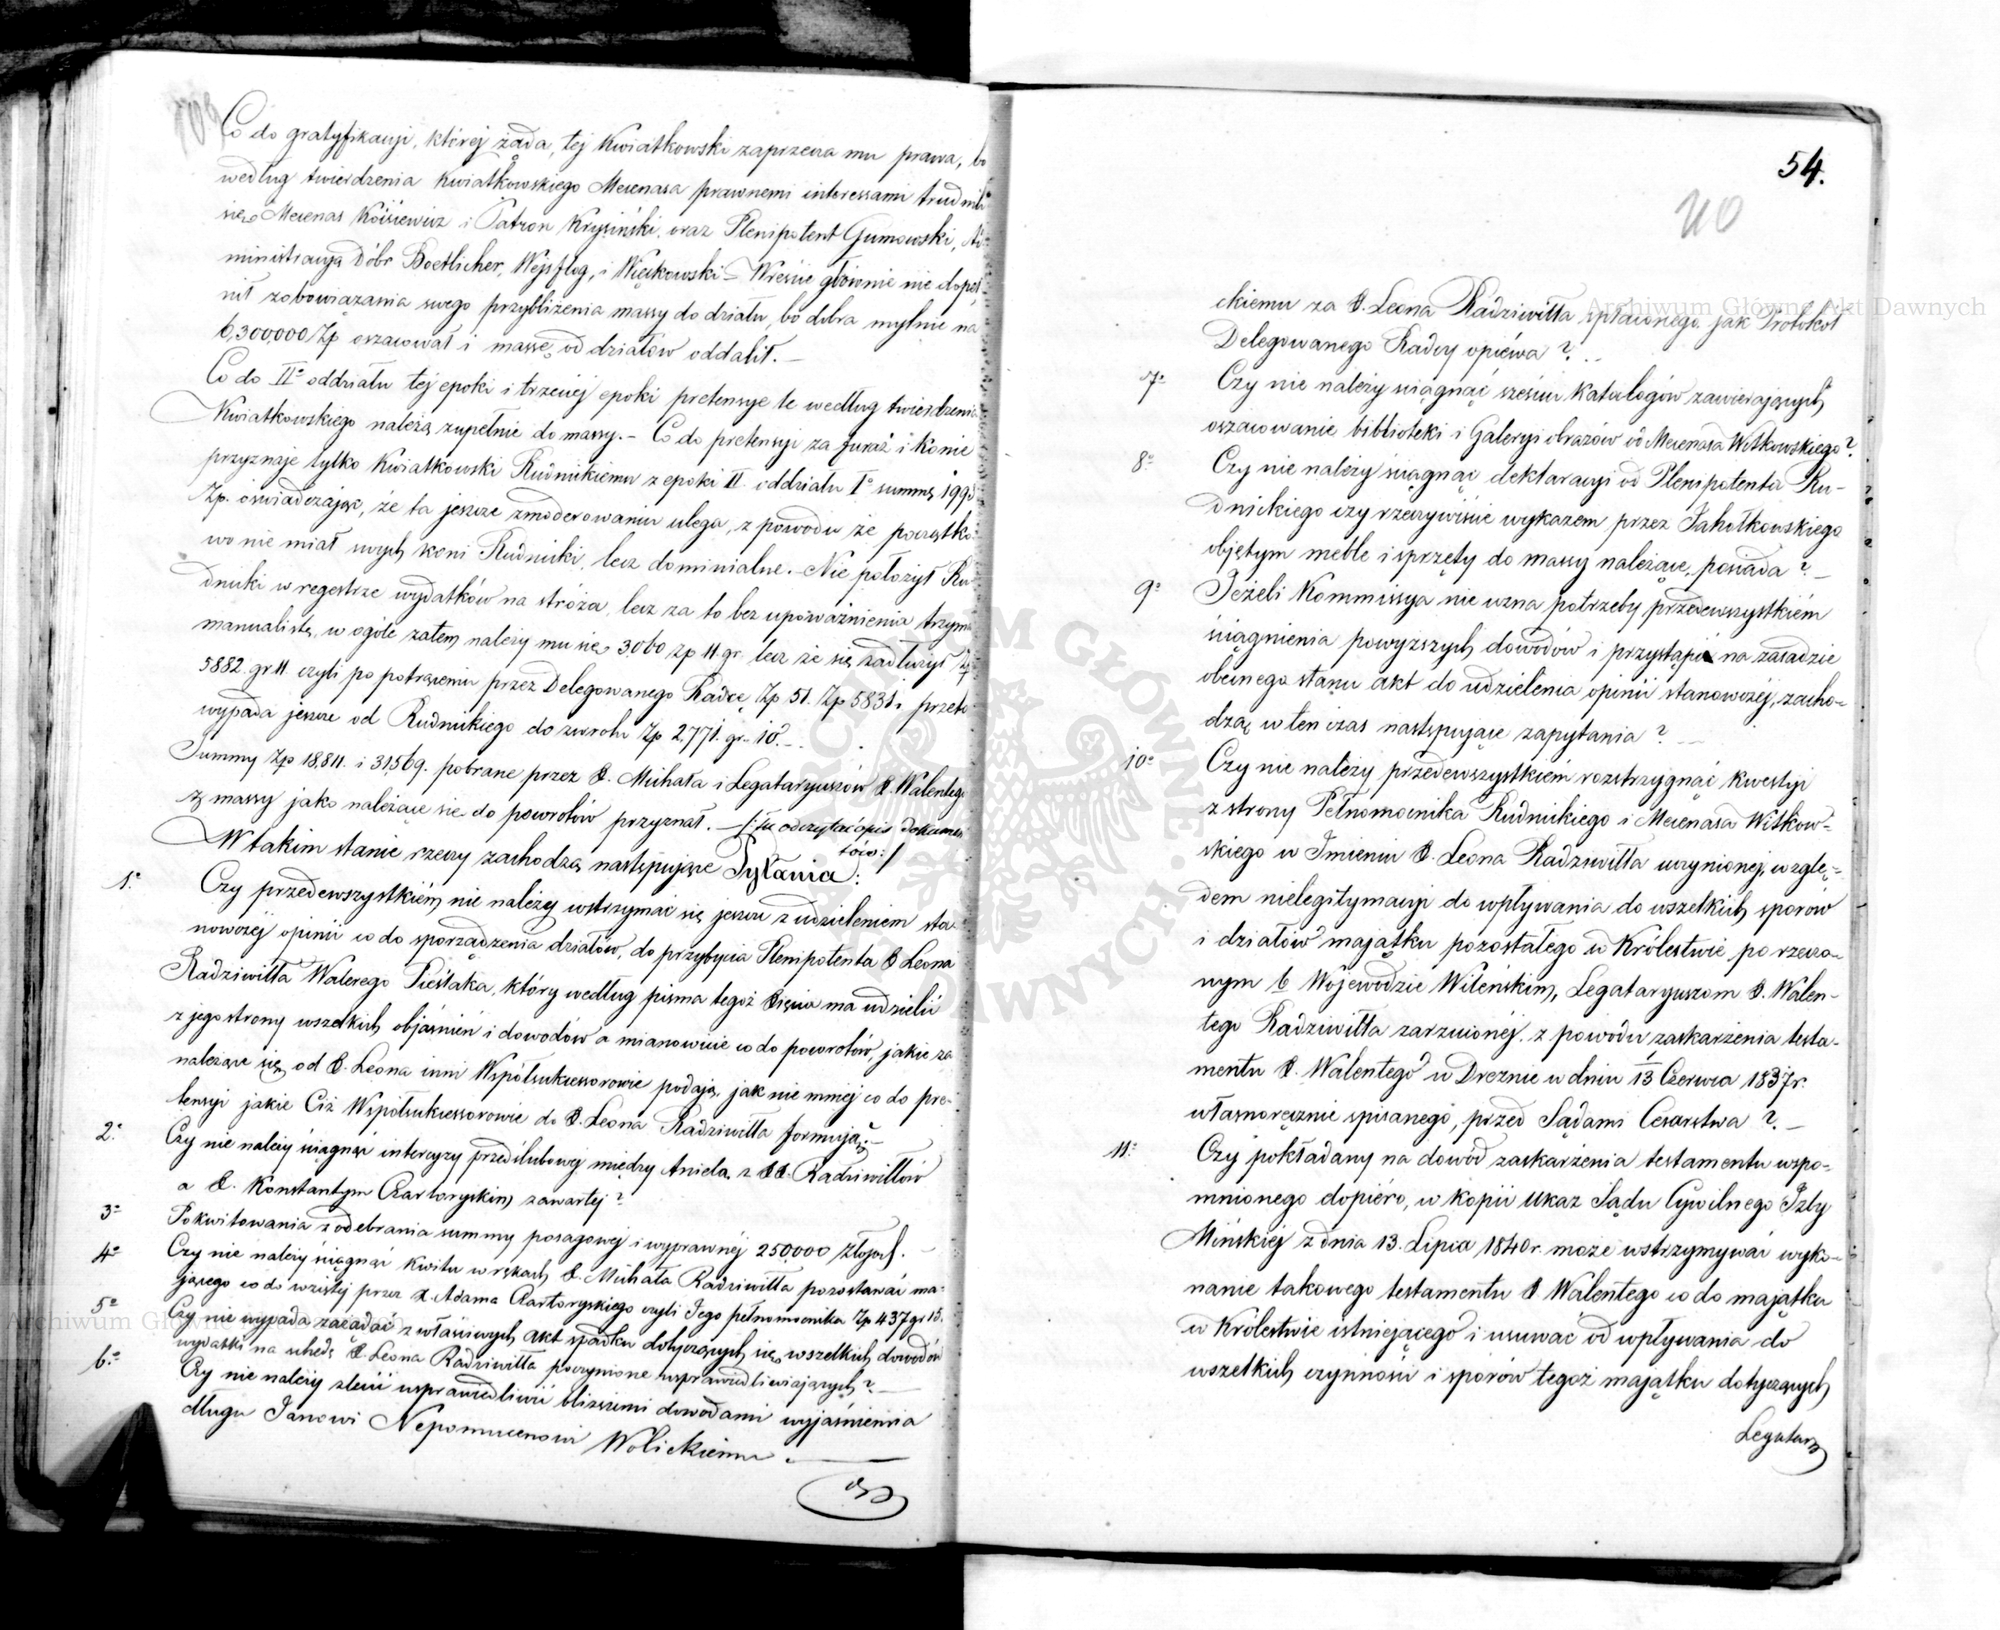 Co do gratyfikacyi, której żąda, tej Kwiatkowski zaprzecza mu prawa, bo
według twierdzenia Kwiatkowskiego Mecenasa prawnemi interessami trudnili
się Mecenas Kosiewicz i Patron Krysiński, oraz Plenipotent Gumowski, Ad-
ministracyą dóbr Boetlicher, Wejsflog, i Więckowski – Wreście głównie nie dopeł-
nił zobowiązania swego przybliżenia massy do działu, bo dobra mylnie na
6,300,000 Zp oszacował i massę od działów oddalił. –
Co do IIo oddziału tej epoki i trzeciej epoki pretensye te według twierdzenia
Kwiatkowskiego należą zupełnie do massy. – Co do pretensyi za furaż i konie
przyznaje tylko Kwiatkowski Rudnickiemu z epoki II. oddziału Io summę 1995
Zp. oświadczając, że ta jeszcze zmoderowaniu ulega, z powodu że początko-
wo nie miał swych koni Rudnicki, lecz dominialne. – Nie położył Ru-
dnicki w regestrze wydatków na stróża, lecz za to bez upoważnienia trzyma
manualistę, w ogóle zatem należy mu się 3060 zp 11. gr. lecz że się zadłużył Zp
5882. gr 11. czyli po potrąceniu przez Delegowanego Radcę Zp 51. Zp 5831. przeto
wypada jeszcze od Rudnickiego do zwrotu Zp 2,771. gr. 10. –
Summy Zp 18,811. i 31,569. pobrane przez X. Michała i Legataryuszów X. Walentego
z massy jako należące się do powrotów przyznał. – /: tu odczytać opis dokumen-
tów :/
W takim stanie rzeczy zachodzą następujące Pytania:
1o Czy przedewszystkiém nie należy wstrzymać się jeszcze z udzieleniem sta-
nowczéj opinii co do sporządzenia działów, do przybycia Plenipotenta X Leona
Radziwiłła Walerego Pieślaka, który według pisma tegoż Xięcia ma udzielić
z jego strony wszelkich objaśnień i dowodów a mianowicie co do powrotów, jakie za
należące się od X. Leona inni Współsukcessorowie podają, jak nie mniej co do pre-
tensyi jakie Ciż Współsukcessorowie do X. Leona Radziwiłła formują? –
2o Czy nie należy ściągnąć intercyzy przedślubnej między Anielą z XX. Radziwiłłów
a X. Konstantym Czartoryskim zawartej?
3o Pokwitowania z odebrania summy posagowej i wyprawnéj 250,000 złotych. –
4o Czy nie należy ściągnąć kwitu w rękach X. Michała Radziwiłła pozostawać ma-
jącego co do wziętej przez X. Adama Czartoryskiego czyli Jego pełnomocnika Zp 437 gr 15.
5o Czy nie wypada zażądać z właściwych akt spadku dotyczących się, wszelkich dowodów
wydatki na schedę X. Leona Radziwiłła poczynione usprawiedliwiających? –
6o Czy nie należy zlecić usprawiedliwić bliższemi dowodami wyjaśnienia
długu Janowi Nepomucenowi Wolickiemu. –
54.
ckiemu za X. Leona Radziwiłła spłaconego, jak Protokół
Delegowanego Radcy opiéwa? –
7o Czy nie należy ściągnąć sześciu katalogów zawierających
oszacowanie biblioteki i Galeryi obrazów od Mecenasa Witkowskiego?
8o Czy nie należy ściągnąć deklaracyi od Plenipotenta Ru-
dnickiego czy rzeczywiście wykazem przez Jahołkowskiego
objętym meble i sprzęty do massy należące, posiada? –
9o Jeżeli Kommissya nie uzna potrzeby przedewszystkiém
ściągnienia powyższych dowodów i przystąpi na zasadzie
obecnego stanu akt do udzielenia opinii stanowczéj, zacho-
dzą w ten czas następujące zapytania? –
10o Czy nie należy przedewszystkiém rozstrzygnąć kwestyi
z strony Pełnomocnika Rudnickiego i Mecenasa Witkow-
skiego w Imieniu X. Leona Radziwiłła uczynionej, wzglę-
dem nielegitymacyi do wpływania do wszelkich sporów
i działów majątku pozostałego w Królestwie po rzeczo-
nym b. Wojewodzie Wileńskim, Legataryuszom X. Walen-
tego Radziwiłła zarzuconéj, z powodu zaskarżenia testa-
mentu X. Walentego w Dreznie w dniu 1/13 Czerwca 1837 r.
własnoręcznie spisanego, przed Sądami Cesarstwa? –
11o Czy pokładany na dowód zaskarżenia testamentu wspo-
mnionego dopiéro, w kopii Ukaz Sądu Cywilnego Izby
Mińskiéj z dnia 13. Lipca 1840 r. może wstrzymywać wyko-
nanie takowego testamentu X Walentego co do majątku
w Królestwie istniejącego i usuwać od wpływania do
wszelkich czynności i sporów tegoż majątku dotyczących
Legatary
Archiwum Główne Akt Dawnych
ARCHIWUM GŁÓWNE AKT DAWNYCH